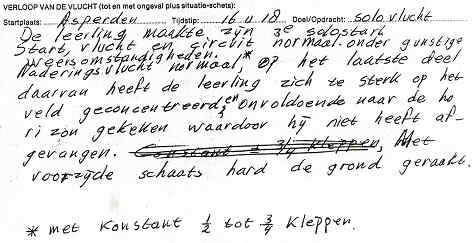 VERLOOP VAN DE VLUCHT (tot en met ongeval plus situatie-schets):
Startplaats: Asperden Tijdstip: 16 u 18 Doel/Opdracht: solo vlucht
De leerling maakte zijn 3e solostart
Start, vlucht en circuit normaal onder gunstige
weersomstandigheden.
Naderingsvlucht normaal,* op het laatste deel
daarvan heeft de leerling zich te sterk op het
veld geconcentreerd, en onvoldoende naar de ho
rizon gekeken waardoor hij niet heeft af-
gevangen. Constant ± 3/4 kleppen, Met
voorzijde schaats hard de grond geraakt.
* met konstant 1/2 tot 3/4 kleppen.